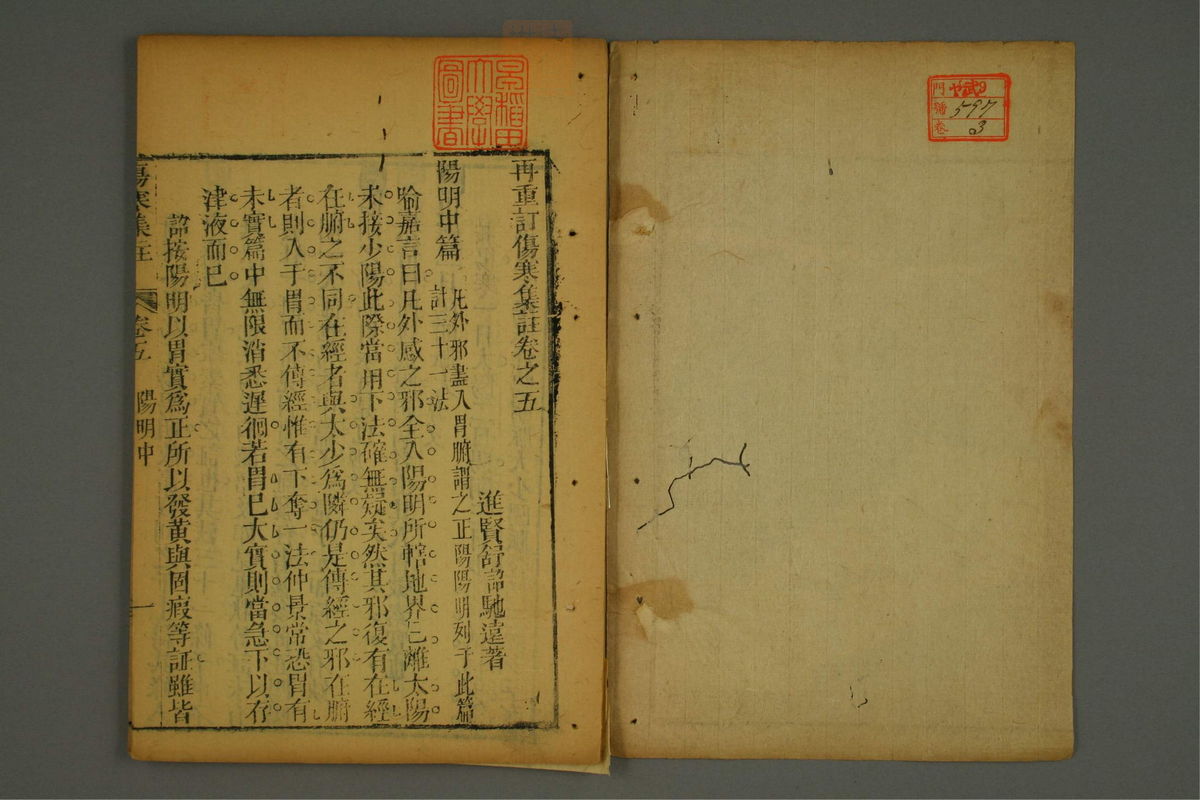 門 ヤ09
號 597
卷 3
早稲田
大學
圖書
再重訂傷寒集註卷之五
進賢舒詔馳遠著
陽明中篇
凡外邪盡入胃腑謂之正陽陽明列于此篇
計三十一法
喻嘉言曰凡外感之邪全入陽明所轄地界已離太陽
未接少陽此際當用下法確無疑矣然其邪復有在經
在腑之不同在經者與太少爲隣仍是傳經之邪在腑
者則入于胃而不傳經惟有下奪一法仲景常恐胃有
未實篇中無限消悉遲徊若胃巳大實則當急下以存
津液而巳
詔按陽明以胃實爲正所以發黄與固瘕等証雖皆
傷寒集註 卷五 陽明中 一